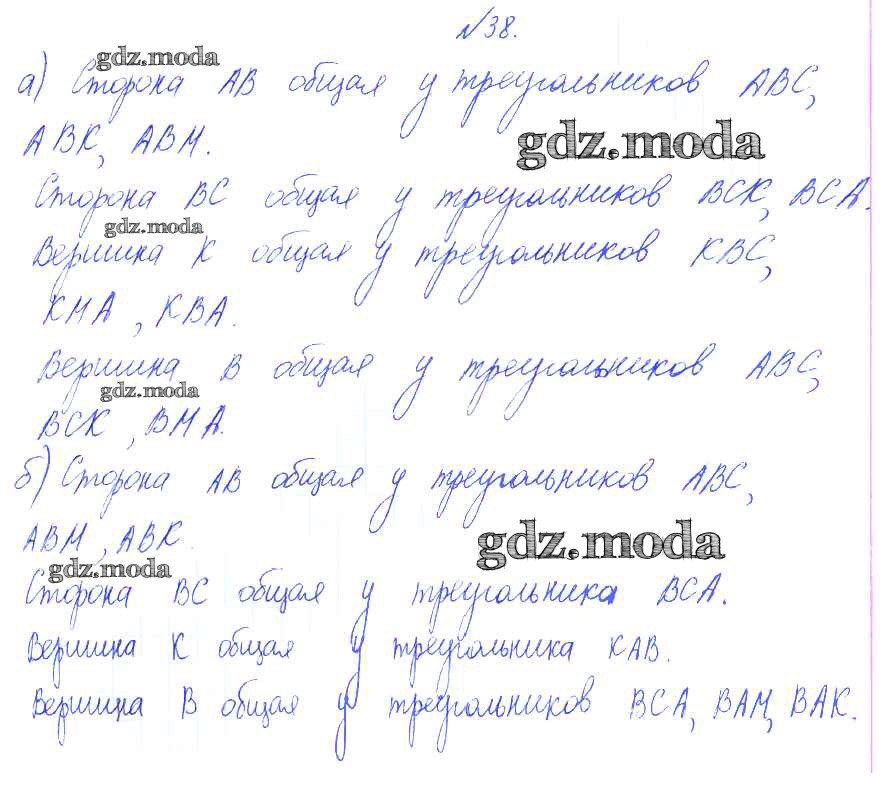 №38.
gdz.moda
а) Сторона АВ общая у треугольников АВС,
АВК, АВМ.
gdz.moda
Сторона ВС общая у треугольников ВСК, ВСА.
gdz.moda
Вершина К общая у треугольников КВС,
КМА, КВА.
Вершина В общая у треугольников АВС,
gdz.moda
ВСК, ВМА.
б) Сторона АВ общая у треугольников АВС,
АВМ, АВК.
gdz.moda
gdz.moda
Сторона ВС общая у треугольника ВСА.
Вершина К общая у треугольника КАВ.
Вершина В общая у треугольников ВСА, ВАМ, ВАК.